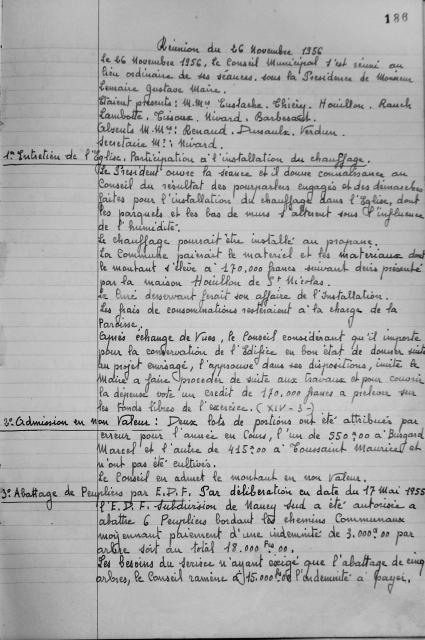 186
Réunion du 26 Novembre 1956
Le 26 Novembre 1956, le Conseil Municipal s'est réuni au
lieu ordinaire de ses séances, sous la Présidence de Monsieur
Lemaire Gustave Maire.
Etaient présents : M.Mrs Eustache. Thiéry. Houillon. Rauch
Lambotte. Nivard.
Absents M.Mrs : Renaud. Dussaulx. Verdun.
Secrétaire Mr : Nivard.
1° Entretien de l'Eglise. Participation à l'installation du chauffage.
Le Président ouvre la séance et il donne connaissance au
Conseil du résultat des pourparlers engagés et des démarches
faites pour l'installation du chauffage dans l'Eglise, dont
les parquets et les bas de murs s'altèrent sous l'influence
de l'humidité.
Le chauffage pourrait être installé au propane.
La Commune paierait le matériel et les matériaux dont
le montant s'élève à 170,000 francs suivant devis présenté
par la maison Houillon de St Nicolas.
Le Curé desservant ferait son affaire de l'Installation.
Les frais de consommations resteraient à la charge de la
Paroisse.
Après échange de Vues, le Conseil considérant qu'il importe
pour la conservation de l'Edifice en bon état de donner suite
au projet envisagé, l'approuve dans ses dispositions, invite le
Maire à faire procéder de suite aux travaux et pour couvrir
la dépense vote un crédit de 170.000 francs à prélever sur
les fonds libres de l'exercice. (XIV-3-)
2° Admission en non Valeur : Deux lots de portions ont été attribués par
erreur pour l'année en Cours, l'un de 550 00 à
Marcel et l'autre de 415 00 à Toussaint Maurice et
n'ont pas été cultivés.
Le Conseil en admet le montant en non Valeur.
3° Abattage de Peupliers par E.D.F. Par délibération en date du 17 Mai 1955
l'E.D.F. subdivision de Nancy sud a été autorisée à
abattre 6 Peupliers bordant les chemins Communaux
moyennant paiement d'une indemnité de 3.000 00 par
arbre soit au total 18.000 Frs 00.
Les besoins du service n'ayant exigé que l'abattage de cinq
arbres, le Conseil ramène à 15.000 00 l'indemnité à payer.